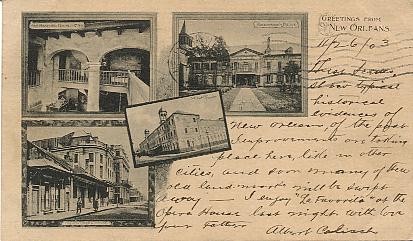 GREETINGS FROM
NEW ORLEANS.
11/26/03
These
show typical
historical
evidences of
New Orleans, of the past
Improvements are taking
place here, like in other
Cities, and soon many of these
old land-marks will be swept
away — I enjoy "La Favorita" at the
Opera House last night with love
your father
Albert